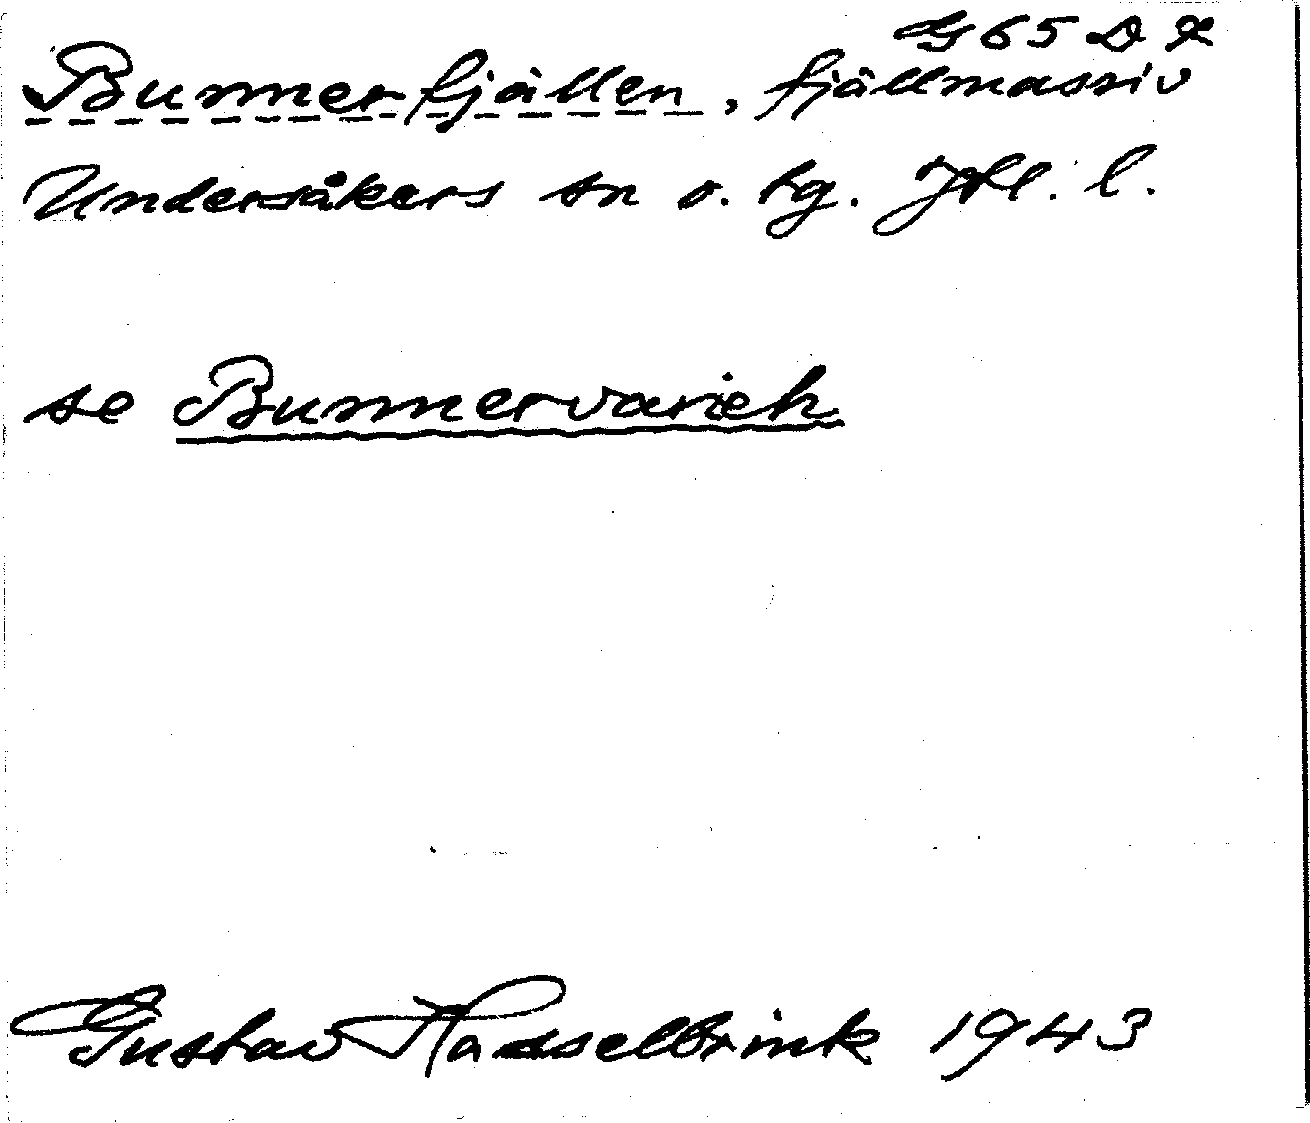 G 65 D
Bunnerfjällen, fjällmassiv
Undersåkers sn o. tg. Jtl. l.
se Bunnervarieh
Gustav Hasselbrink 1943